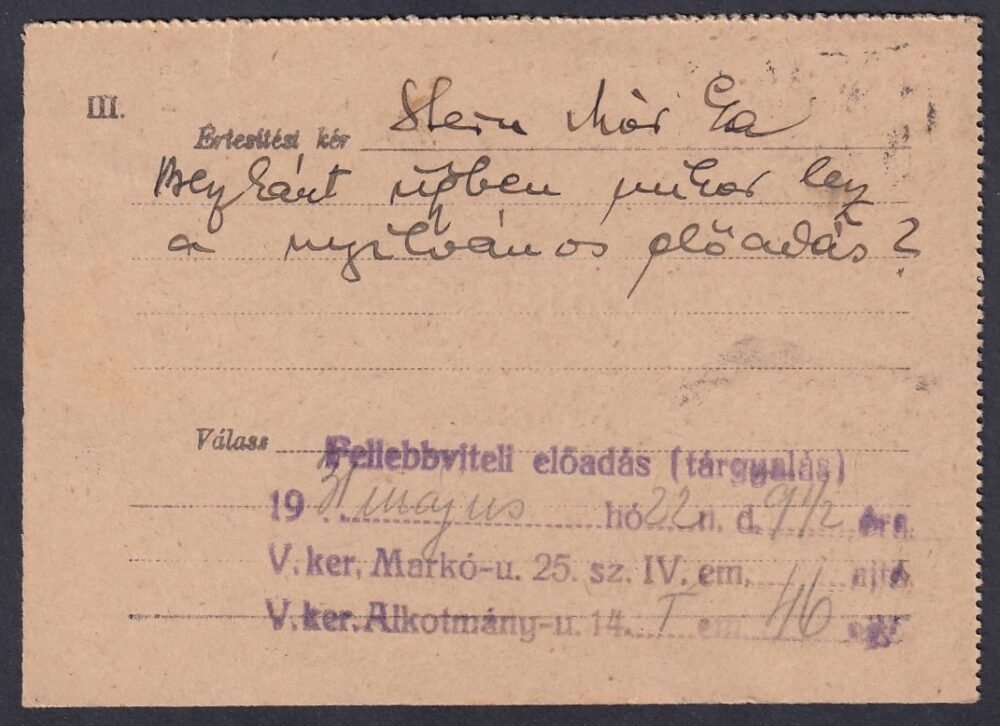 III.
Értesítést kér Stern Mór
ügyben mikor lesz
a nyilvános előadás?
Válasz Fellebbviteli előadás (tárgyalás)
19 31 május hó 22 n. d. 9 1/2 óra
V. ker. Markó-u. 25. sz. IV. em. ajtó
V. ker. Alkotmány-u. 14. I em 46